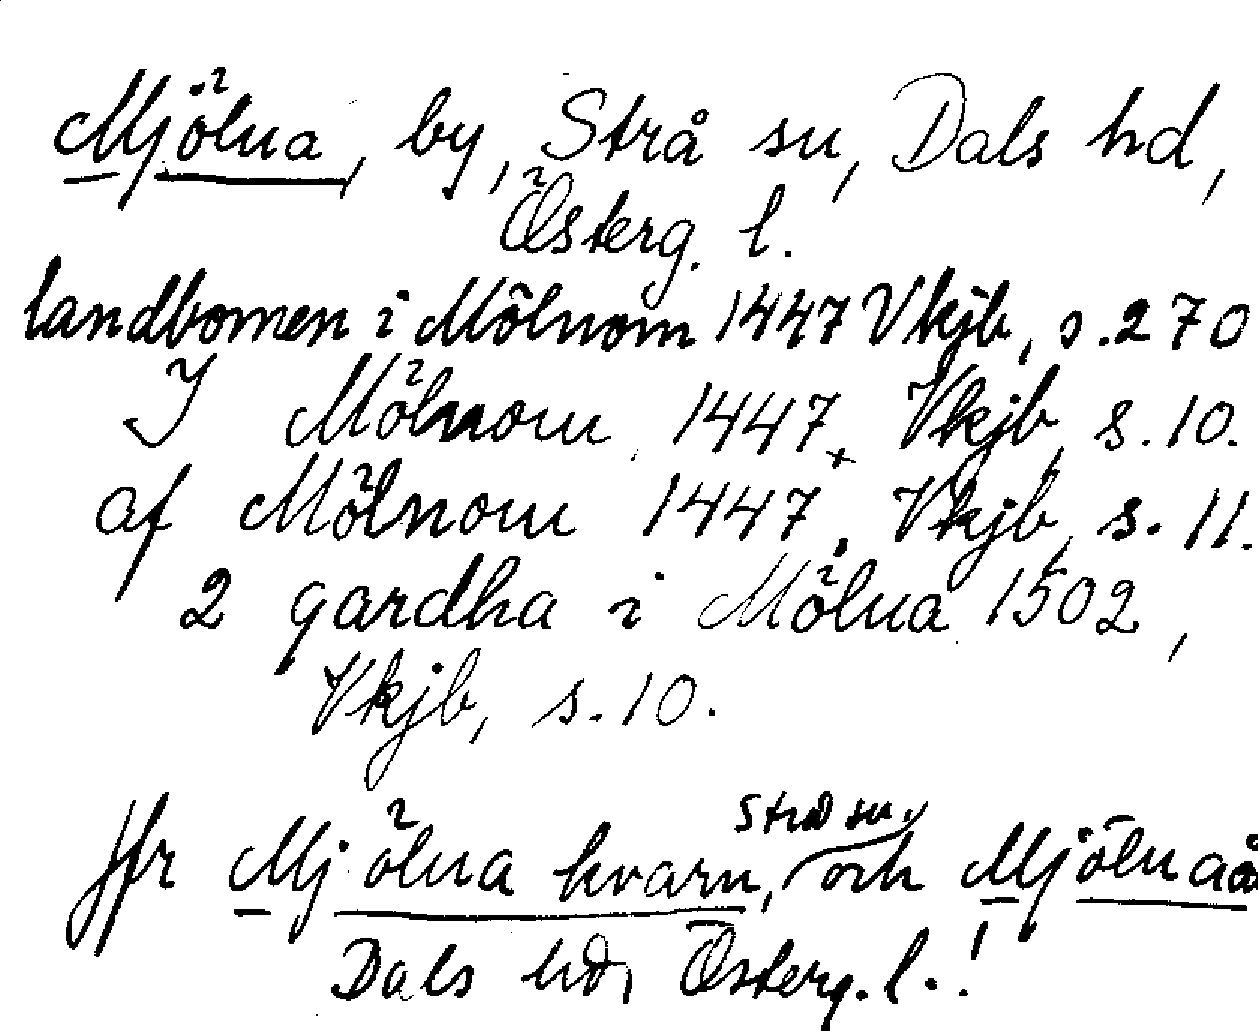 Mjölna, by, Strå sn, Dals hd,
Österg. l.
landbomen i Mölnom 1447 Vkjb, s. 270
I Mölnom 1447, Vkjb, s. 10.
af Mölnom 1447, Vkjb, s. 11.
2 gardha i Mölna 1502,
Vkjb, s. 10.
Jfr Mjölna kvarn, Strå sn, och Mjölnaån
Dals hd, Österg. l.!